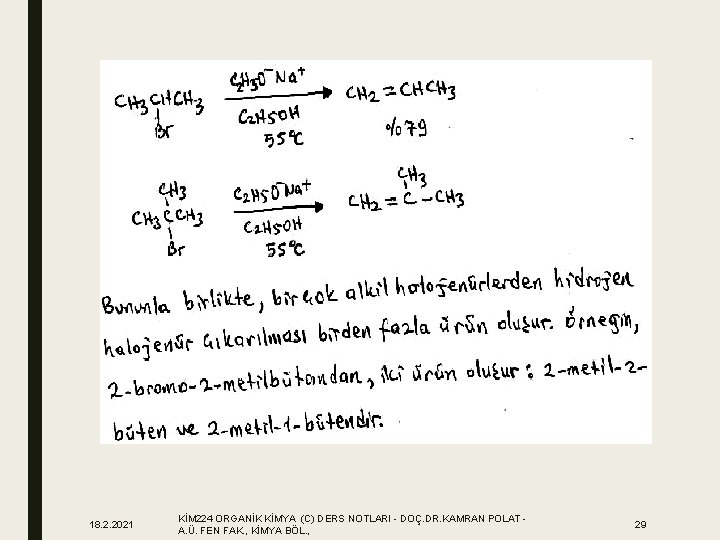 C2H5O⁻Na⁺
CH3CHCH3 → CH2=CHCH3
Br
C2H5OH
55°C
%79
CH3
CH3
C2H5O⁻Na⁺
CH3CCH3 → CH2=C-CH3
Br
C2H5OH
55°C
Bununla birlikte, birçok alkil halojenürlerden hidrojen
halojenür çıkarılması birden fazla ürün oluşur. Örneğin,
2-bromo-2-metilbütandan, iki ürün oluşur: 2-metil-2-
büten ve 2-metil-1-bütendir.
18.2.2021
KİM224 ORGANİK KİMYA (C) DERS NOTLARI - DOÇ.DR.KAMRAN POLAT -
A.Ü. FEN FAK., KİMYA BÖL.,
29